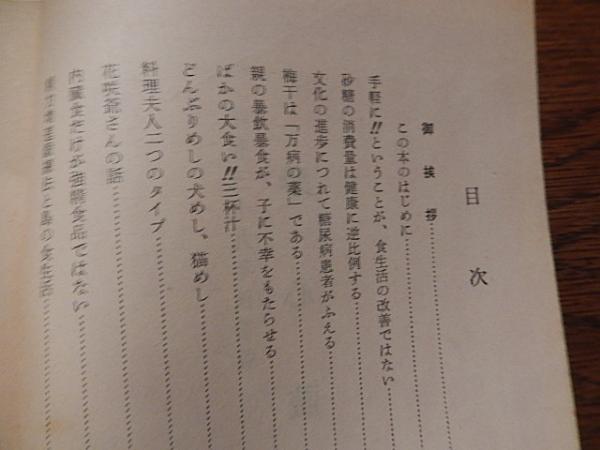 目次
御挨拶
この本のはじめに
手軽に!!ということが、食生活の改善ではない
砂糖の消費量は健康に逆比例する
文化の進歩につれて糖尿病患者がふえる
梅干は「万病の薬」である
親の暴飲暴食が、子に不幸をもたらせる
ばかの大食い!!三杯汁
どんぶりめしの犬めし、猫めし
料理夫人二つのタイプ
花咲爺さんの話
内臓食だけが強精食品ではない
の食生活